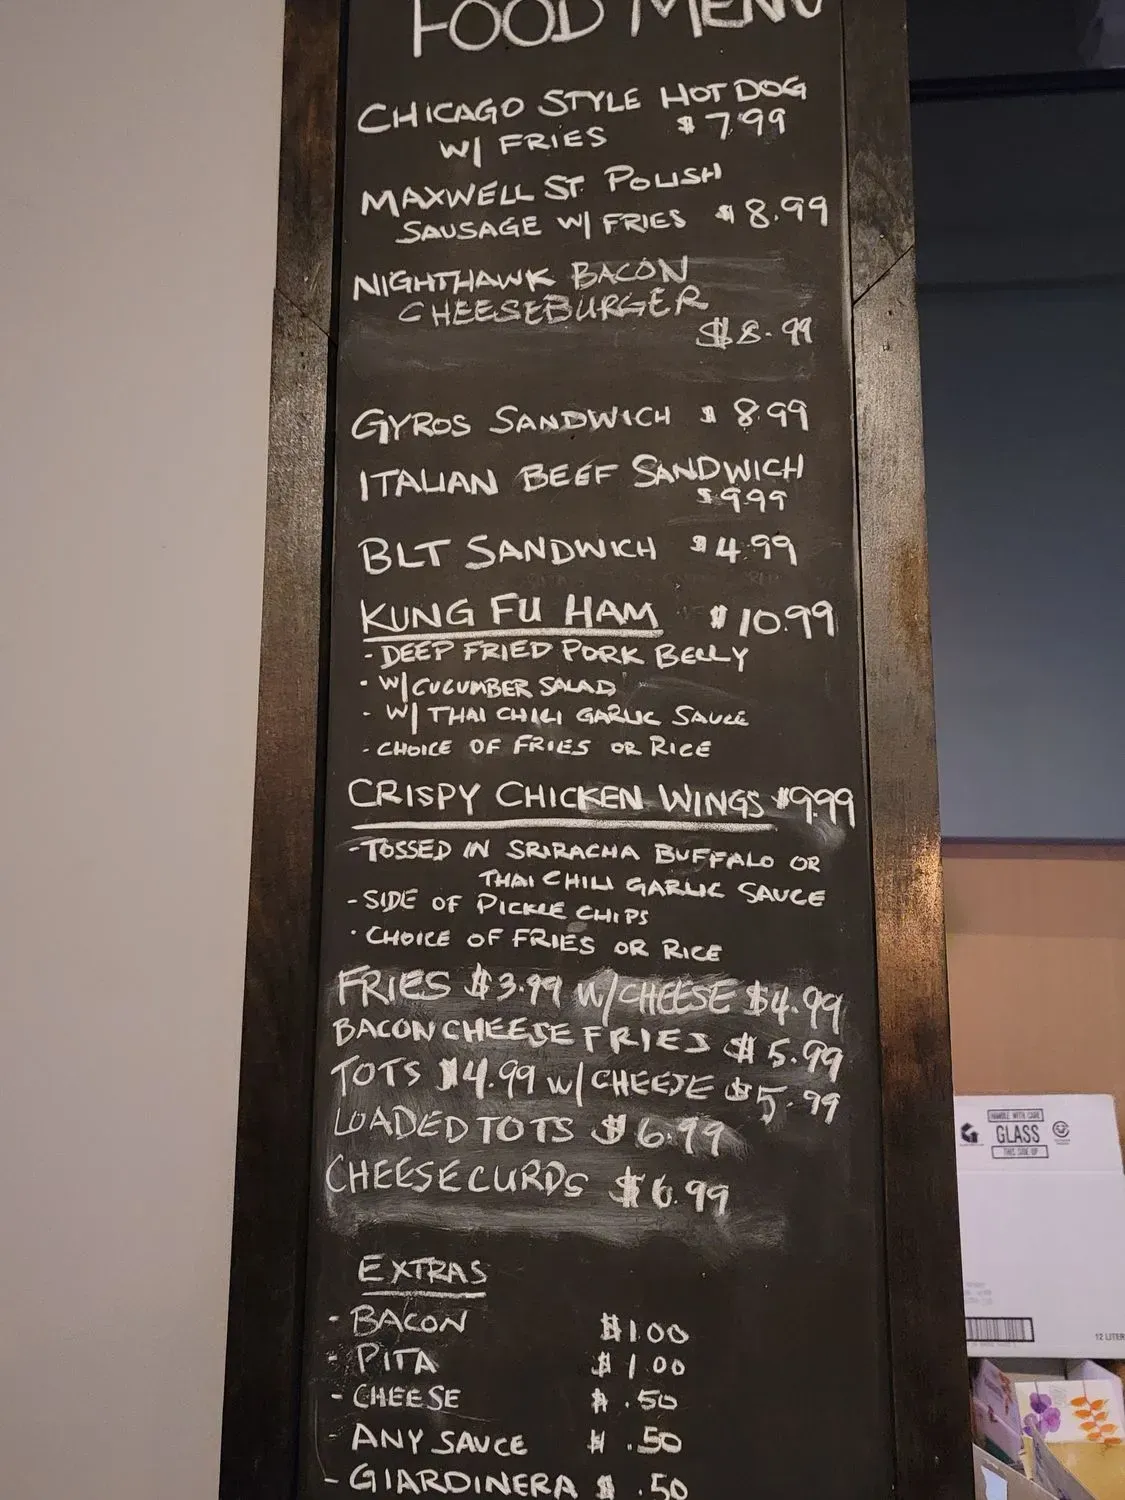 FOOD MENU
CHICAGO STYLE HOT DOG
W/ FRIES $7.99
MAXWELL ST. POLISH
SAUSAGE W/ FRIES $8.99
NIGHTHAWK BACON
CHEESEBURGER
$8.99
GYROS SANDWICH $8.99
ITALIAN BEEF SANDWICH
$9.99
BLT SANDWICH $4.99
KUNG FU HAM $10.99
- DEEP FRIED PORK BELLY
- W/ CUCUMBER SALAD
- W/ THAI CHILI GARLIC SAUCE
- CHOICE OF FRIES OR RICE
CRISPY CHICKEN WINGS $9.99
- TOSSED IN SRIRACHA BUFFALO OR
THAI CHILI GARLIC SAUCE
- SIDE OF PICKLE CHIPS
- CHOICE OF FRIES OR RICE
FRIES $3.99 W/CHEESE $4.99
BACON CHEESE FRIES $5.99
TOTS $4.99 W/CHEESE $5.99
LOADED TOTS $6.99
CHEESE CURDS $6.99
EXTRAS
- BACON $1.00
- PITA $1.00
- CHEESE $.50
- ANY SAUCE $.50
- GIARDINERA $.50
HANDLE WITH CARE
GLASS
THIS SIDE UP
12 LITER